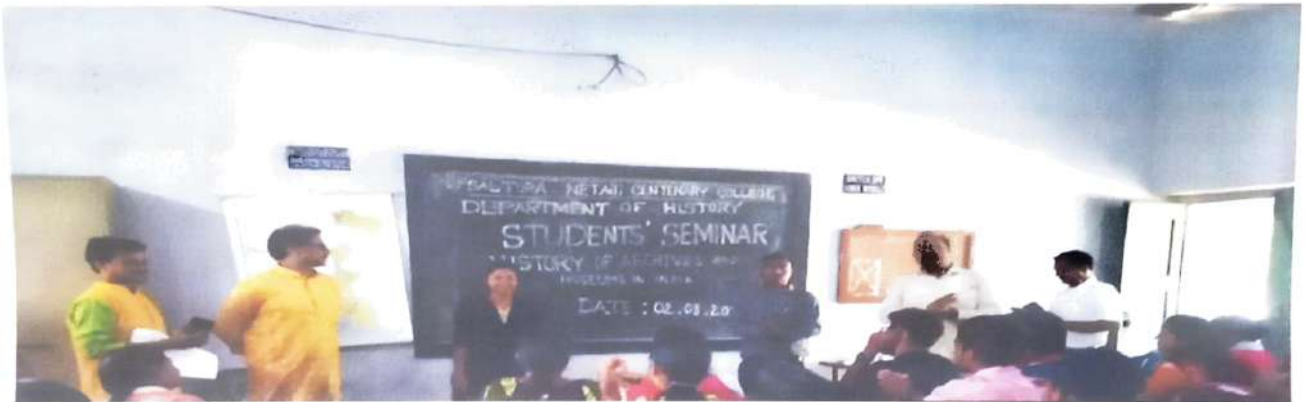 SALTORA NETAJI CENTENARY COLLEGE
DEPARTMENT OF HISTORY
STUDENTS' SEMINAR
HISTORY OF ARCHIVES AND
MUSEUMS IN INDIA
DATE : 02.03.20